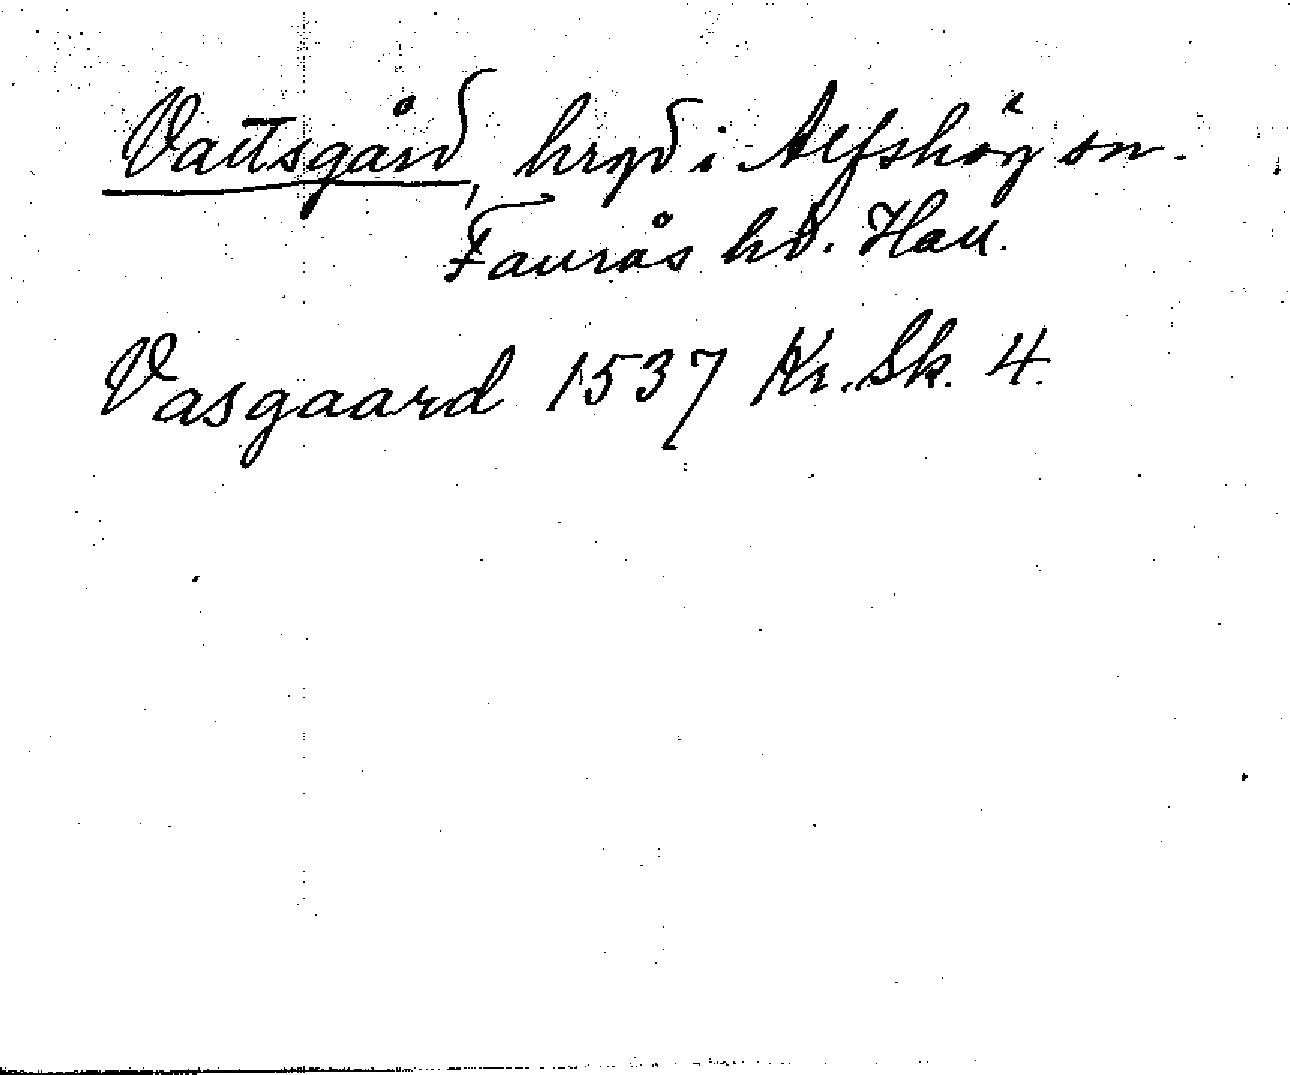 Vattsgård, hrgd i Alfshög sn.
Faurås hd. Hall.
Vasgaard 1537 Kr. Sk. 4.